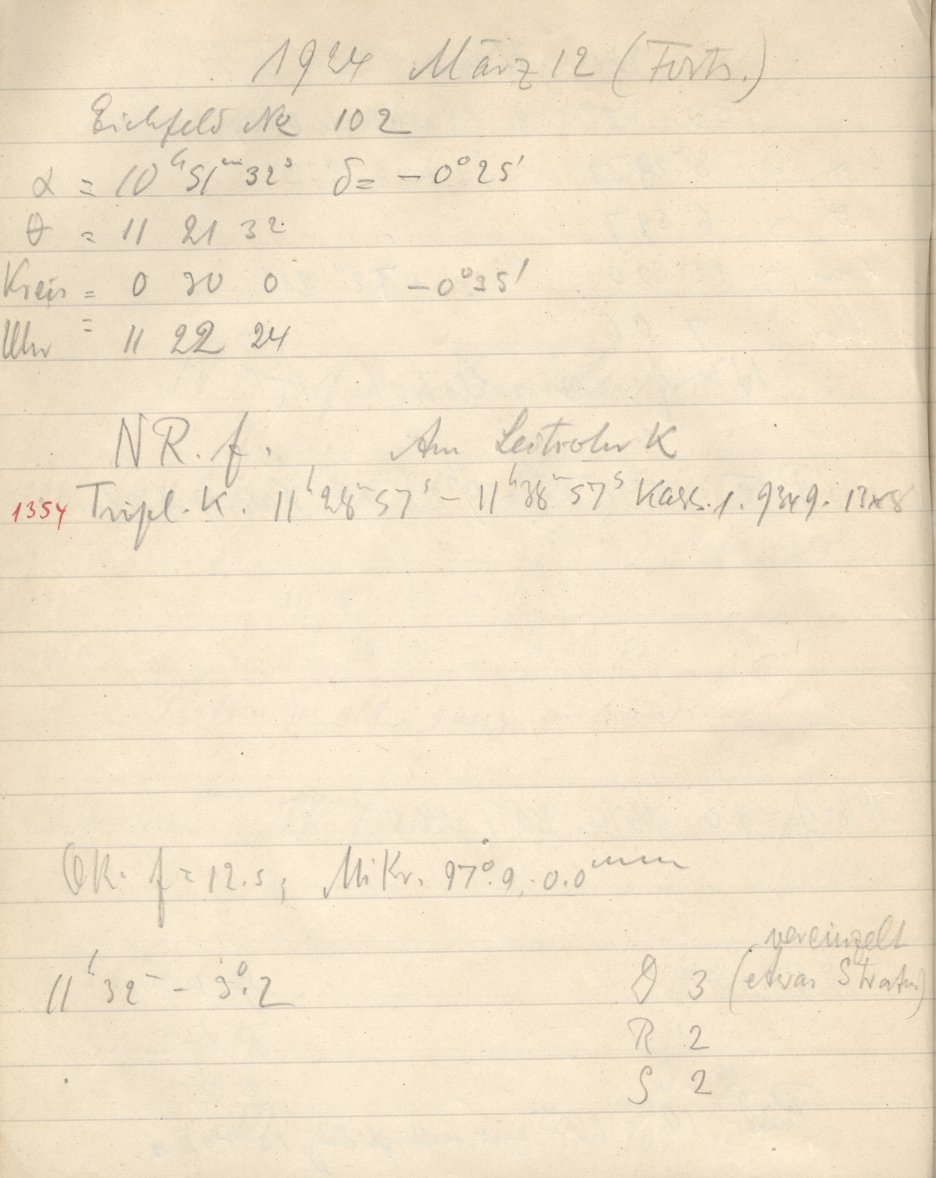 1924 März 12 (Forts.)
Eichfeld No 102
α = 10ʰ 51ᵐ 32ˢ δ = -0° 25'
θ = 11 21 32
Kreis = 0 30 0 -0° 35'
Uhr = 11 22 24
NR. f. Am Leitrohr K
1354 Tripl. K. 11ʰ 28ᵐ 57ˢ - 11ʰ 38ᵐ 57ˢ Kass. 1. 9349.
OK. f = 12.5; Mikr. 97°.9, 0.0ᵐᵐ
vereinzelt
11ʰ 32ᵐ - 3°.2 3 (etwas Stratus)
R 2
S 2